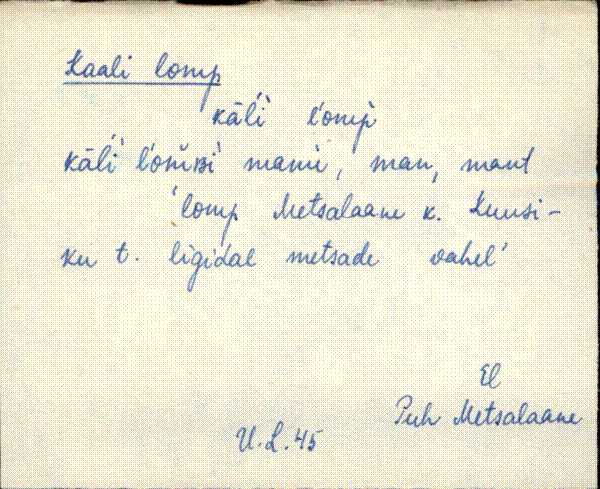 Kaali lomp
kāl̀i l'omp̀
kāl̀i l'om̆ʙi manu, man, mant
'lomp Metsalaane k. Kuusi-
ku t. ligidal metsade vahel'
El
Puh Metsalaane
U.L.45